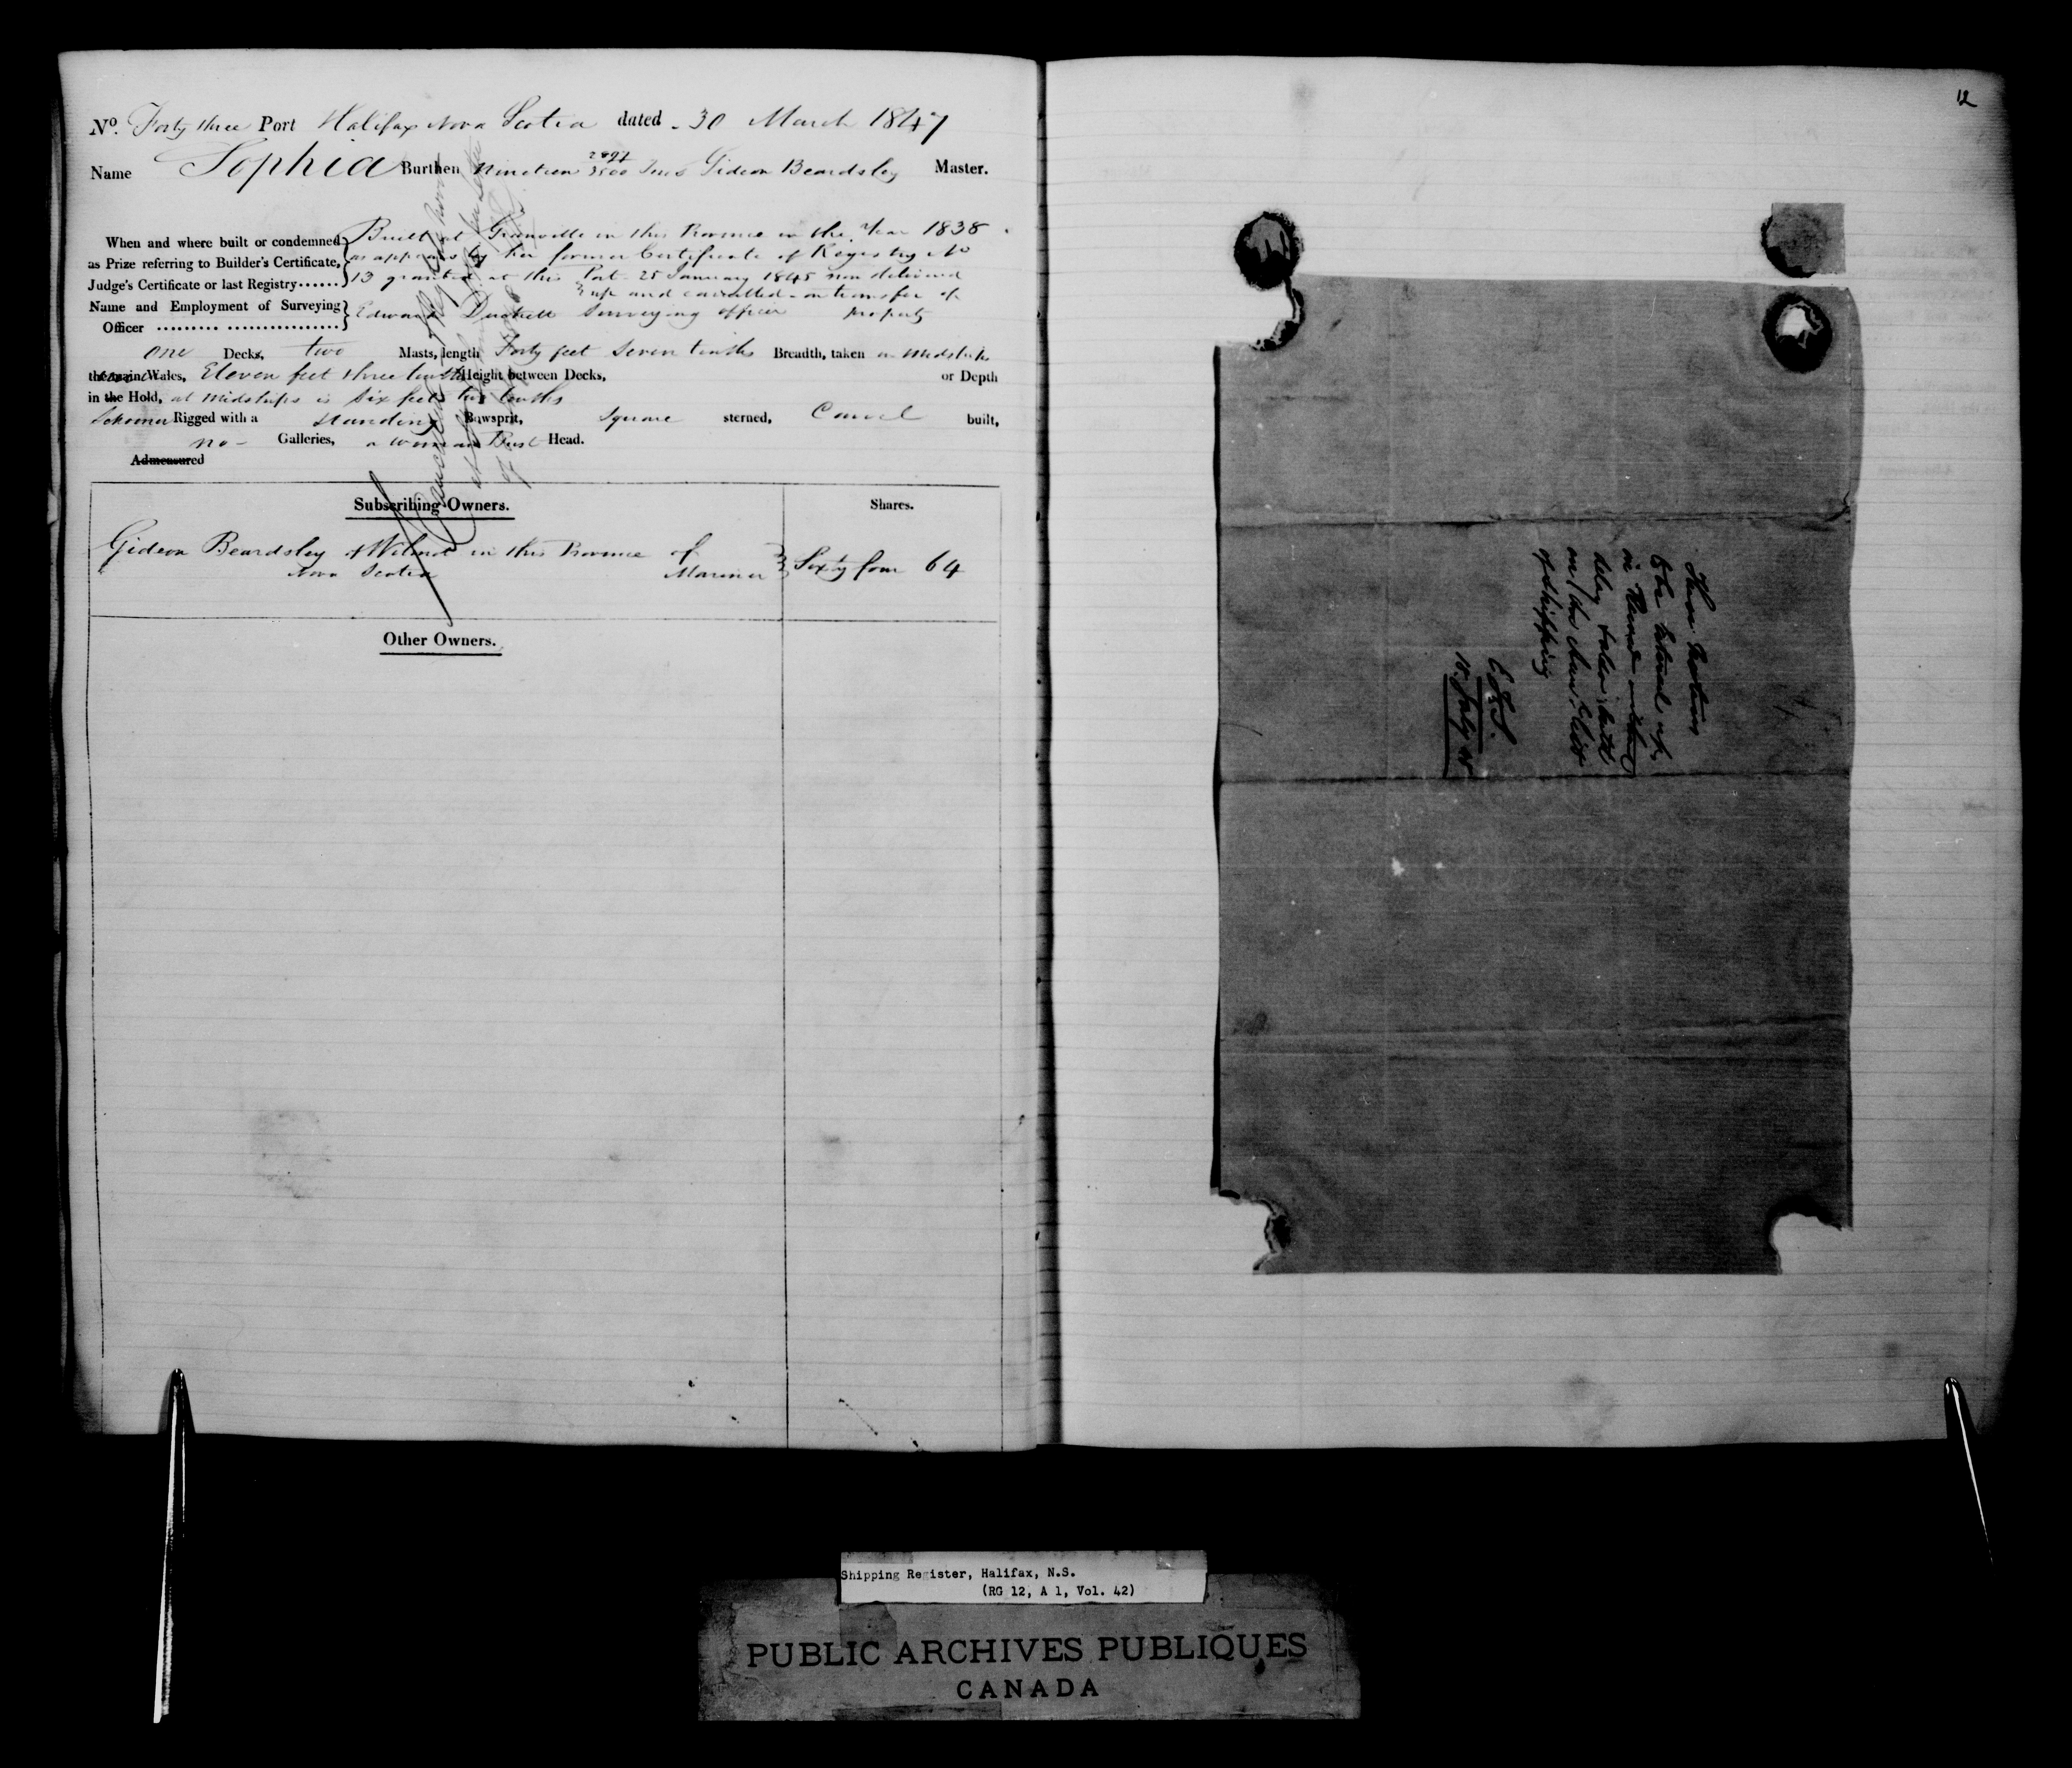 12
No. Forty three Port Halifax Nova Scotia dated - 30 March 1847
Name Sophia Burthen Nineteen 2897/3500 Tons Gideon Beardsley Master.
When and where built or condemned as Prize referring to Builder's Certificate, Judge's Certificate or last Registry......
Built at Granville in this Province in the Year 1838
as appears by her former Certificate of Registry No
13 granted at this Port 25 January 1845 now delivered
up and cancelled - on transfer of
property
Name and Employment of Surveying Officer .......... ................
Edward Duckett Surveying officer
One Decks, two Masts, length Forty feet Seven tenths Breadth, taken in Midships
the main Wales, Eleven feet three tenths Height between Decks, or Depth
in the Hold, at Midships is Six feet two tenths
Schooner Rigged with a Standing Bowsprit, Square sterned, Carvel built,
no - Galleries, a woman Bust Head.
Admeasured
Cancelled
Subscribing Owners. Shares.
Gideon Beardsley of Wilmot in this Province of
Nova Scotia Mariner Sixty four 64
Other Owners.
on the
of Shipping
July
Shipping Register, Halifax, N.S.
(RG 12, A 1, Vol. 42)
PUBLIC ARCHIVES PUBLIQUES
CANADA